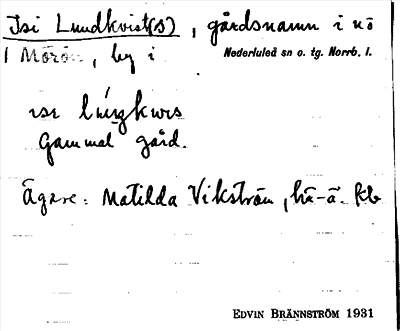 Isi Lundkvist(s), gårdsnamn i nö
Mörön, by i
Nederluleå sn o. tg. Norrb. l.
ısı
Gammal gård.
Ägare: Matilda Vikström, hä-ä. kb
EDVIN BRÄNNSTRÖM 1931